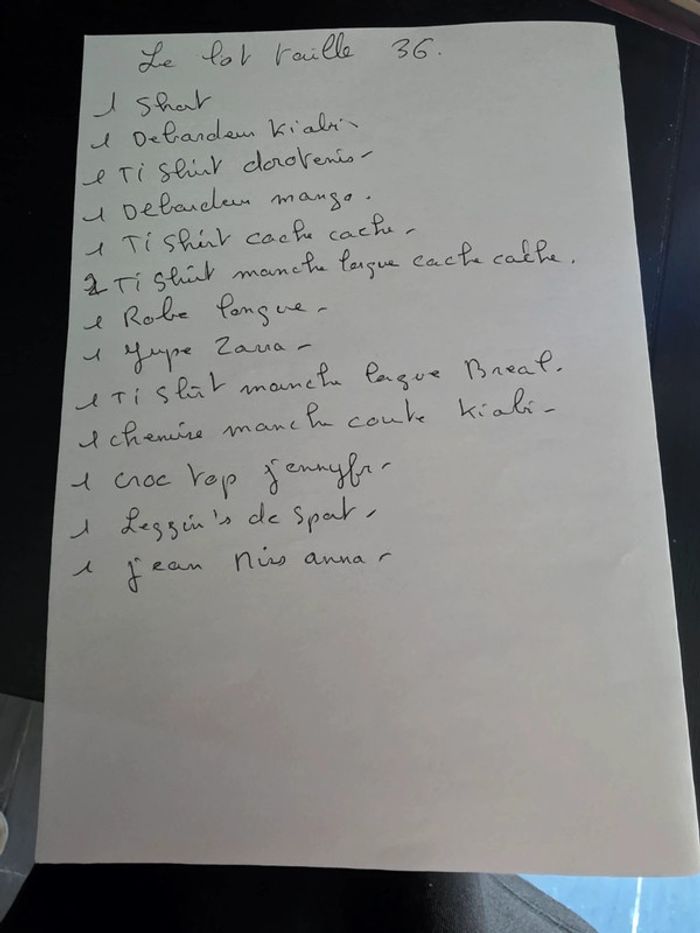 Le lot taille 36.
1 Short
1 Debardeur Kiabi-
1 Ti Shirt dorotenis-
1 Debardeur mango.
1 Ti Shirt cache cache-
2 Ti Shirt manche longue cache cache.
1 Robe longue-
1 Jupe Zara-
1 Ti Shirt manche longue Breal.
1 chemise manche courte Kiabi-
1 croc top jennyfr-
1 Leggin's de Spot-
1 jean Niss anna-